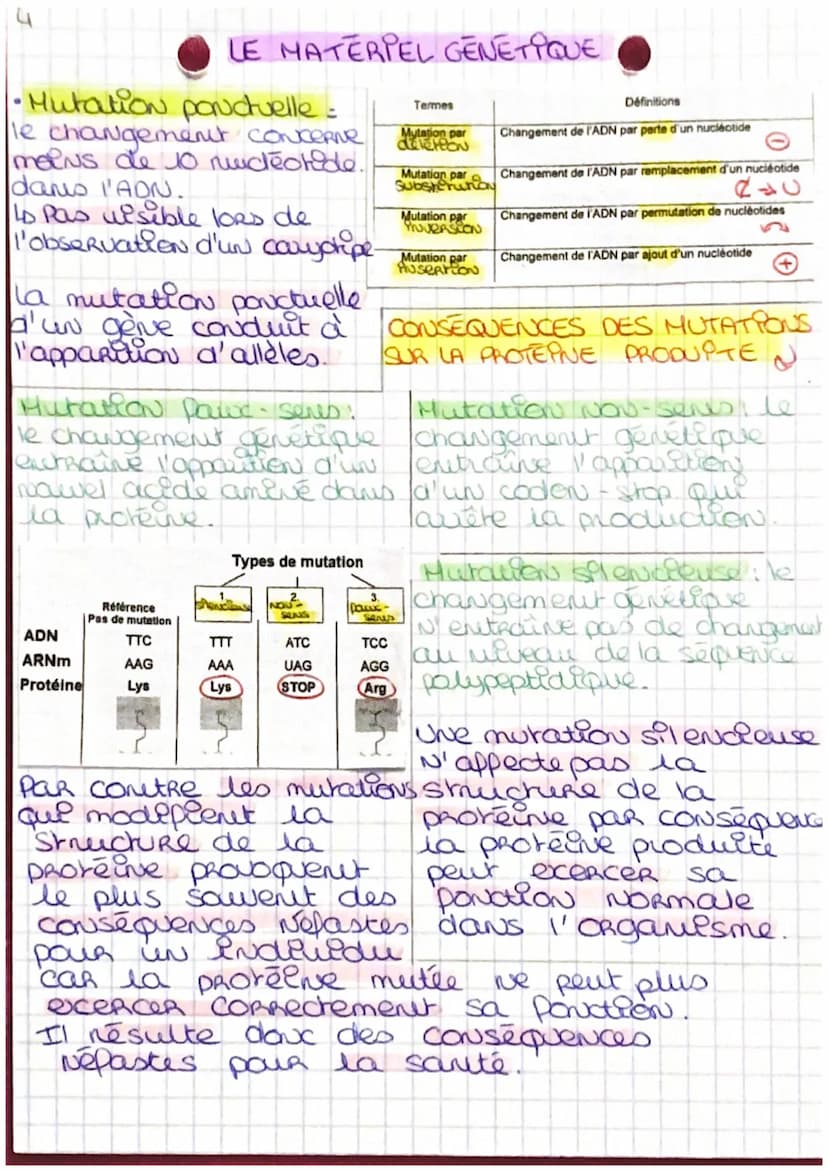 4
LE MATÉRIEL GÉNÉTIQUE
• Mutation ponctuelle :
le changement concerne
moins de 10 nucléotide.
dans l'ADN.
↳ Pas visible lors de
l'observation d'un caryotipe
La mutation ponctuelle
d'un gène conduit à
l'apparition d'allèles.
Termes Définitions
Mutation par délétion Changement de l'ADN par perte d'un nucléotide ⊖
Mutation par substitution Changement de l'ADN par remplacement d'un nucléotide
Mutation par inversion Changement de l'ADN par permutation de nucléotides
Mutation par insertion Changement de l'ADN par ajout d'un nucléotide ⊕
CONSÉQUENCES DES MUTATIONS
SUR LA PROTÉINE PRODUITE
Mutation faux-sens :
le changement génétique
entraîne l'apparition d'un
nouvel acide aminé dans
la protéine.
Mutation non-sens : le
changement génétique
entraîne l'apparition
d'un coden-stop qui
arrête la production.
Types de mutation
Référence
Pas de mutation
1 silencieuse
2 non-sens
3 faux-sens
ADN TTC TTT ATC TCC
ARNm AAG AAA UAG AGG
Protéine Lys Lys STOP Arg
Mutation silencieuse : le
changement génétique
N'entraîne pas de changement
au niveau de la séquence
polypeptidique.
Une mutation silencieuse
N'affecte pas la
structure de la
protéine par conséquence
la protéine produite
peut exercer sa
fonction normale
dans l'organisme.
Par contre les mutations
qui modifient la
structure de la
protéine provoquent
le plus souvent des
conséquences néfastes
pour un individu
car la protéine mutée ne peut plus
exercer correctement sa fonction.
Il résulte donc des conséquences
Néfastes pour la santé.